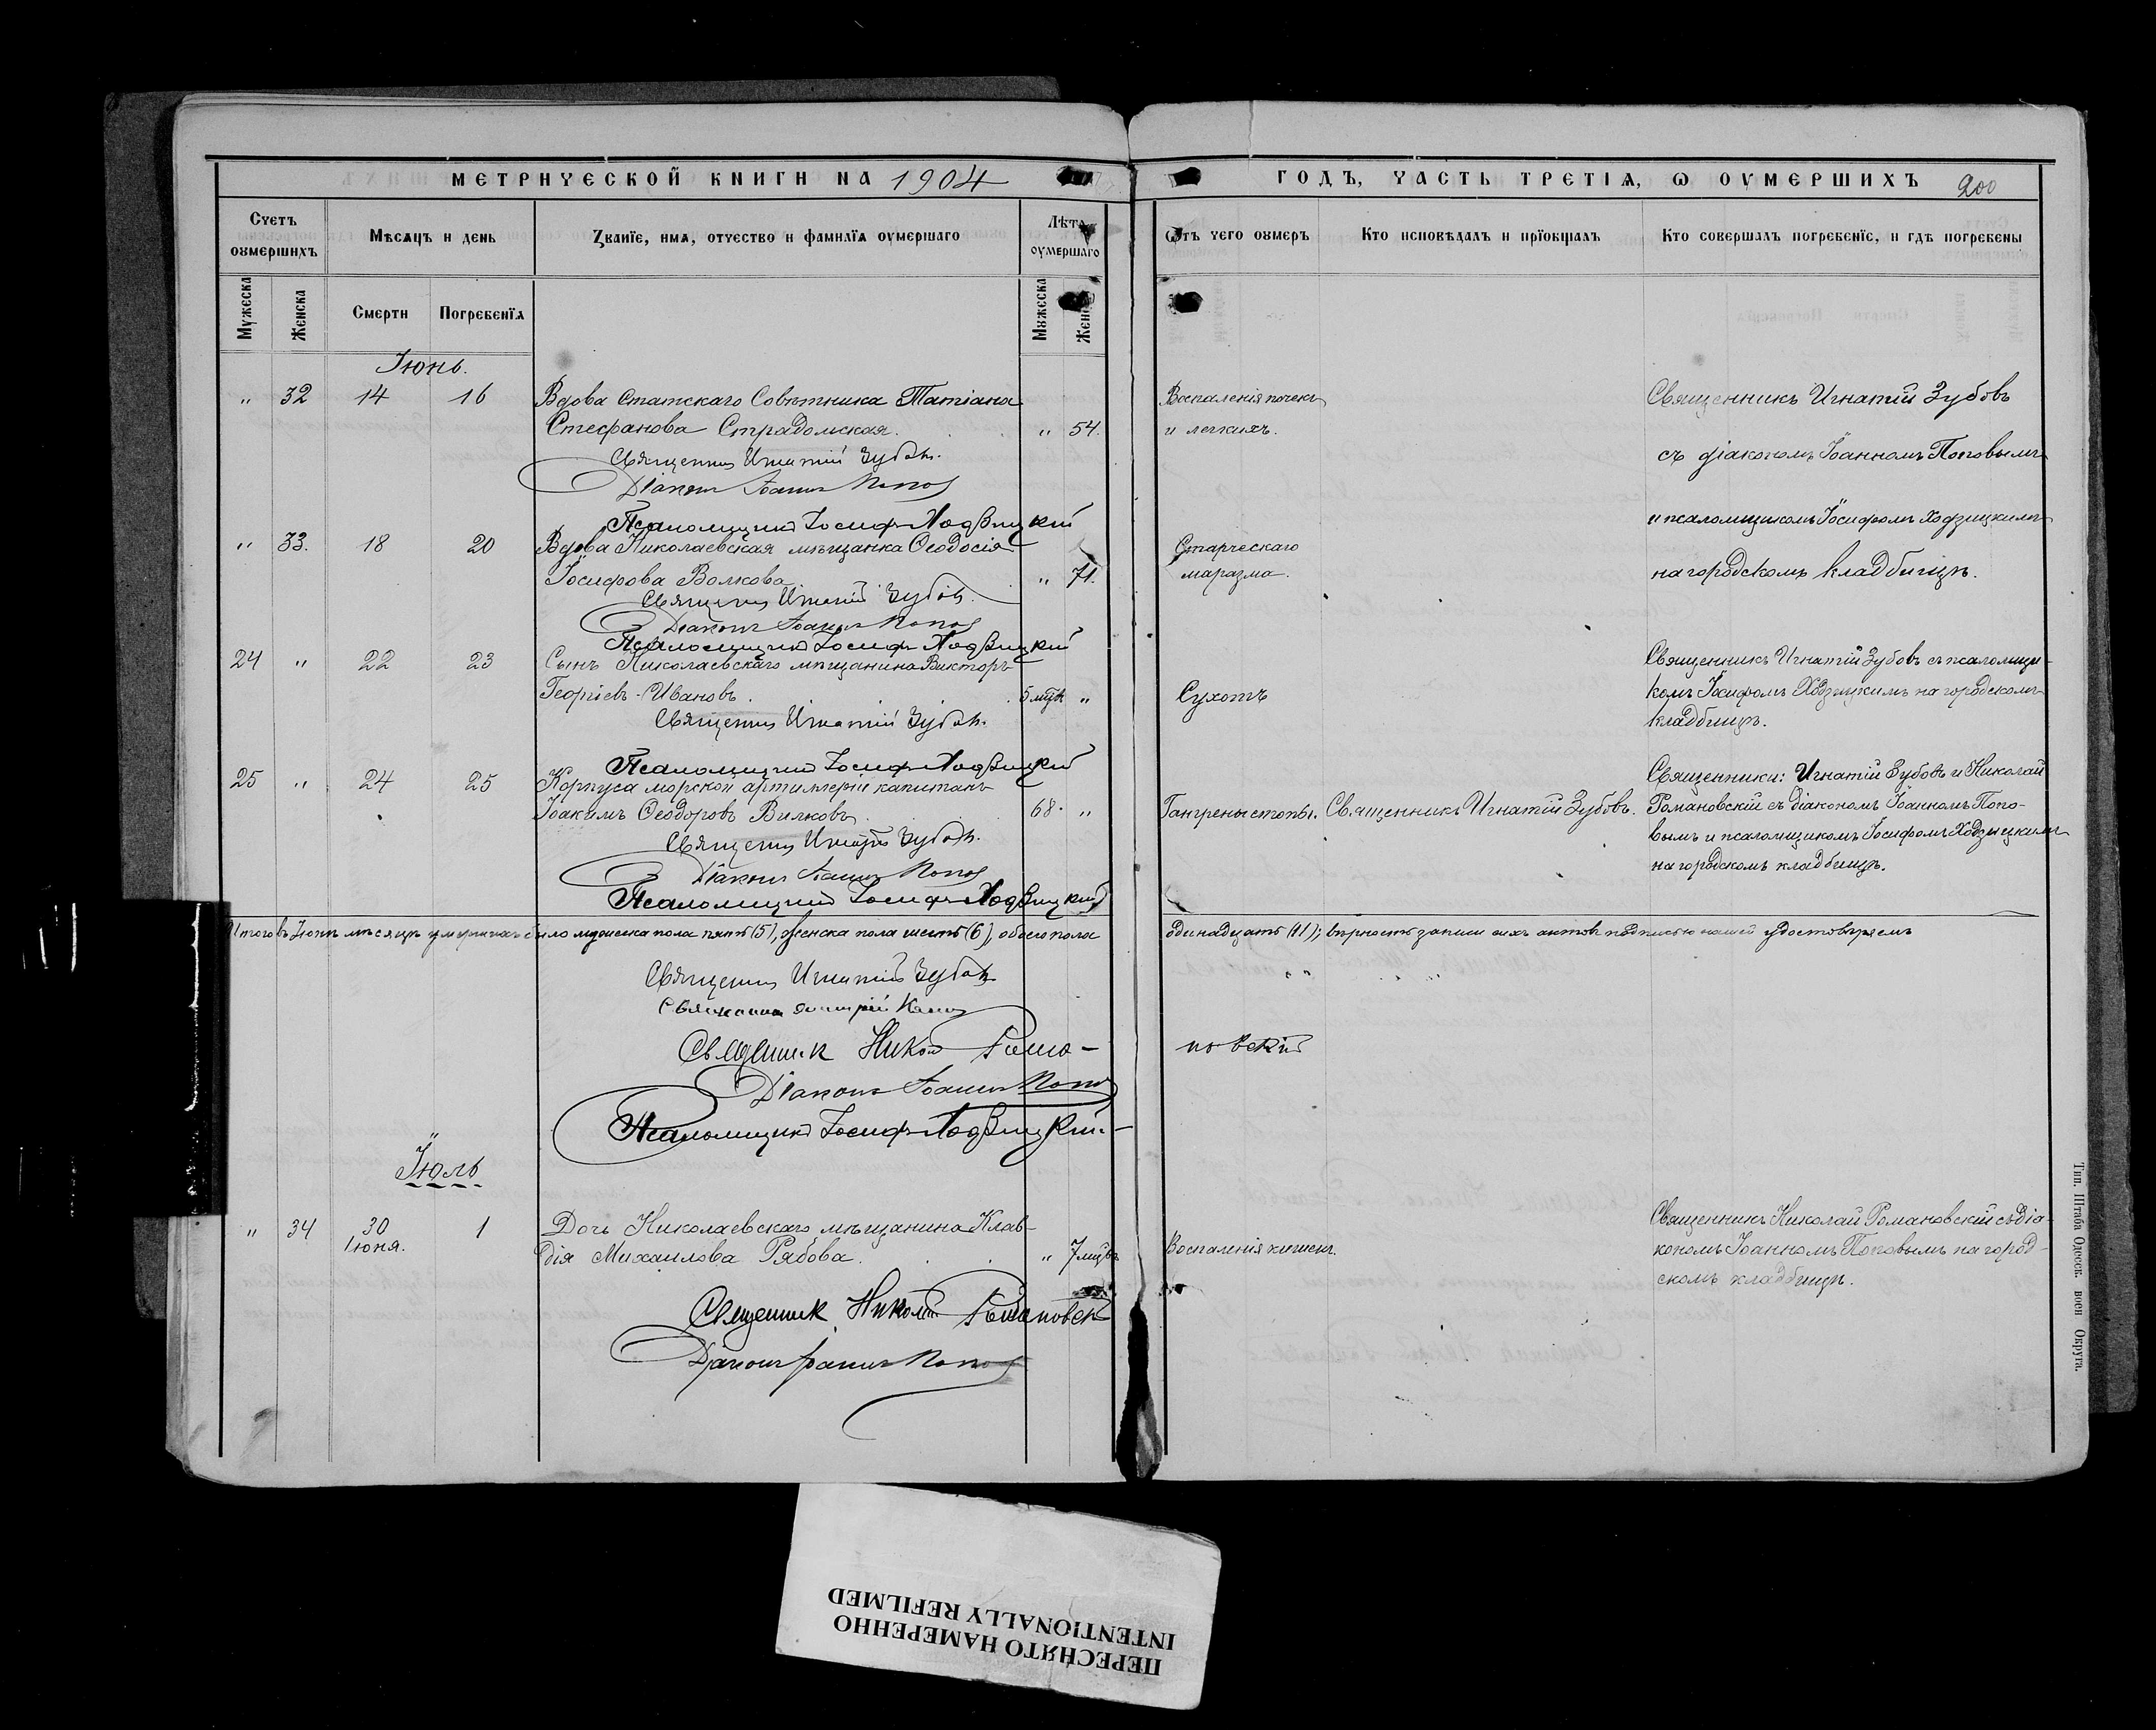 МЕТРИЧЕСКОЙ КНИГИ НА 1904
ГОДЪ, ЧАСТЬ ТРЕТІЯ, Ѡ ОУМЕРШИХЪ 200
Счетъ оумершихъ
Мѣсяцъ и день
Званїе, имя, отчество и фамилїя оумершаго
Лѣта оумершаго
Ѿтъ чего оумеръ
Кто исповѣдалъ и прїобщалъ
Кто совершалъ погребенїе, и гдѣ погребены
Мужеска
Женска
Смерти
Погребенїя
Мужеска
Женска
Іюнь.
" 32 14 16 Вдова Статскаго Совѣтника Татіана
Стефанова Страдомская. " 54.
Воспаленія почекъ
и легкихъ.
Священникъ Игнатій Зубовъ
съ діакономъ Іоанномъ Поповымъ
и псаломщикомъ Іосифомъ Ходзицкимъ
на городскомъ кладбищѣ.
Священникъ Игнатій Зубовъ.
Діаконъ Іоаннъ Поповъ
Псаломщикъ Іосифъ Ходзицкій
" 33. 18 20 Вдова Николаевская мѣщанка Ѳеодосія
Іосифова Волкова " 71.
Старческаго
маразма.
Священникъ Игнатій Зубовъ.
Діаконъ Іоаннъ Поповъ
Псаломщикъ Іосифъ Ходзицкій
24 " 22 23 Сынъ Николаевскаго мѣщанина Викторъ
Георгіевъ Ивановъ. 5 мѣц. "
Сухотъ
Священникъ Игнатій Зубовъ съ псаломщи-
комъ Іосифомъ Ходзицкимъ на городскомъ
кладбищѣ.
Священникъ Игнатій Зубовъ.
Псаломщикъ Іосифъ Ходзицкій
25 " 24 25 Корпуса морской артиллеріи капитанъ
Іоакимъ Ѳеодоровъ Вилковъ. 68. "
Гангрены стопы. Священникъ Игнатій Зубовъ.
Священники: Игнатій Зубовъ и Николай
Романовскій съ діакономъ Іоанномъ Попо-
вымъ и псаломщикомъ Іосифомъ Ходзицкимъ
на городскомъ кладбищѣ.
Священникъ Игнатій Зубовъ.
Діаконъ Іоаннъ Поповъ
Псаломщикъ Іосифъ Ходзицкій
Итого въ Іюнѣ мѣсяцѣ умершихъ было мужеска пола пять (5), женска пола шесть (6), обоего пола одинадцать (11); вѣрность записи сихъ актовъ подписью нашей удостовѣряемъ
Священникъ Игнатій Зубовъ
Священникъ Димитрій
Священникъ Николай Рома-
новскій
Діаконъ Іоаннъ Поповъ
Псаломщикъ Іосифъ Ходзицкій.
Іюль
" 34 30 Іюня. 1 Дочь Николаевскаго мѣщанина Клав-
дія Михаилова Рябова. " 7 мѣц.
Воспаленія кишекъ.
Священникъ Николай Романовскій съ діа-
кономъ Іоанномъ Поповымъ на город-
скомъ кладбищѣ.
Священникъ Николай Романовскій
Діаконъ Іоаннъ Поповъ
Тип. Штаба Одесск. воен Округа.
ПЕРЕСНЯТО НАМЕРЕННО
INTENTIONALLY REFILMED